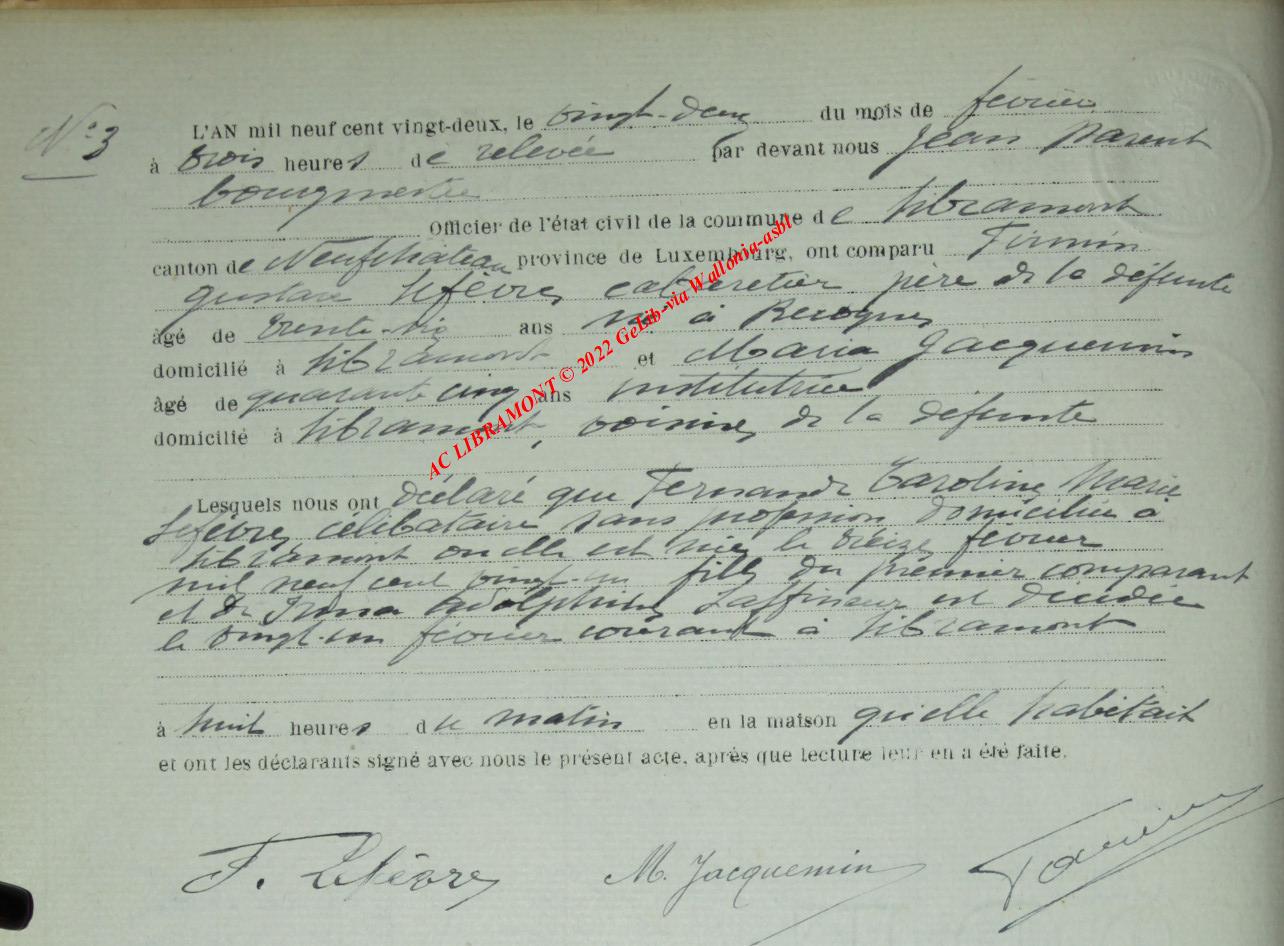 N° 3
L'AN mil neuf cent vingt-deux, le vingt-deux du mois de février
à trois heures de relevée par devant nous Jean Parent
bourgmestre
Officier de l'état civil de la commune de Libramont
canton de Neufchâteau province de Luxembourg, ont comparu Firmin
Gustave Lefèvre, cabaretier, père de la défunte
âgé de trente-six ans né à Recogne
domicilié à Libramont et Maria Jacquemin
âgé de quarante cinq ans institutrice
domicilié à Libramont, voisine de la défunte
Lesquels nous ont déclaré que Fernande Caroline Marie
Lefèvre, célibataire sans profession domiciliée à
Libramont où elle est née le treize février
mil neuf cent vingt-un fille du premier comparant
et de Irma Adolphine Laffineur est décédée
le vingt-un février courant à Libramont
à huit heures du matin en la maison qu'elle habitait
et ont les déclarants signé avec nous le présent acte, après que lecture leur en a été faite.
F. Lefèvre M. Jacquemin
AC LIBRAMONT © 2022 GeLib-via Wallonia-asbl